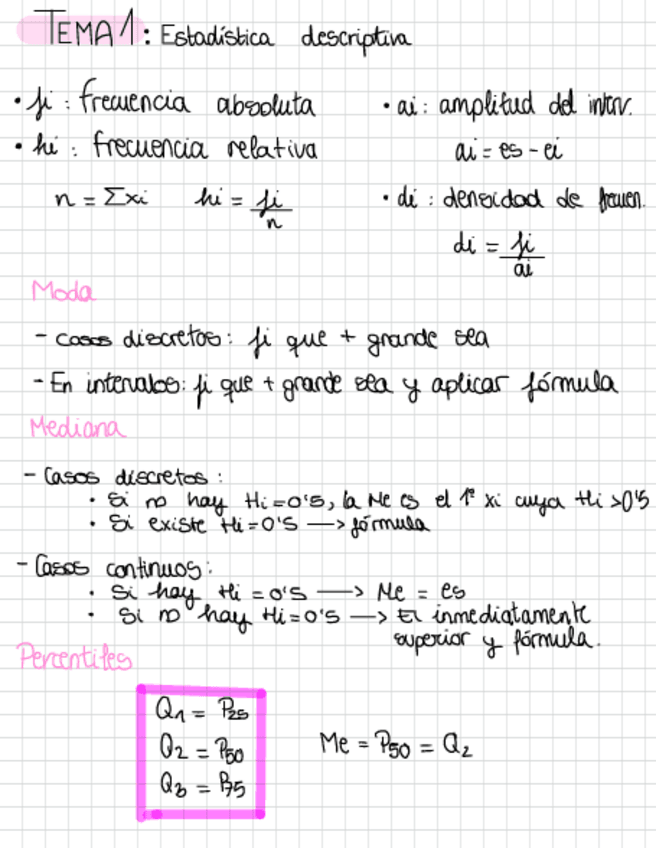 TEMA 1: Estadística descriptiva
• fi : frecuencia absoluta
• hi : frecuencia relativa
n = Σxi hi = fi/n
• ai : amplitud del interv.
ai = es - ei
• di : densidad de frecuen.
di = fi/ai
Moda
- casos discretos : fi que + grande sea
- En intervalos: fi que + grande sea y aplicar fórmula
Mediana
- Casos discretos :
• Si no hay Hi=0'5, la Me es el 1º xi cuya Hi >0'5
• Si existe Hi=0'5 —> fórmula
- Casos continuos :
• Si hay Hi = 0'5 —> Me = es
• Si no hay Hi=0'5 —> El inmediatamente
superior y fórmula.
Percentiles
Q1 = P25
Q2 = P50
Q3 = P75
Me = P50 = Q2